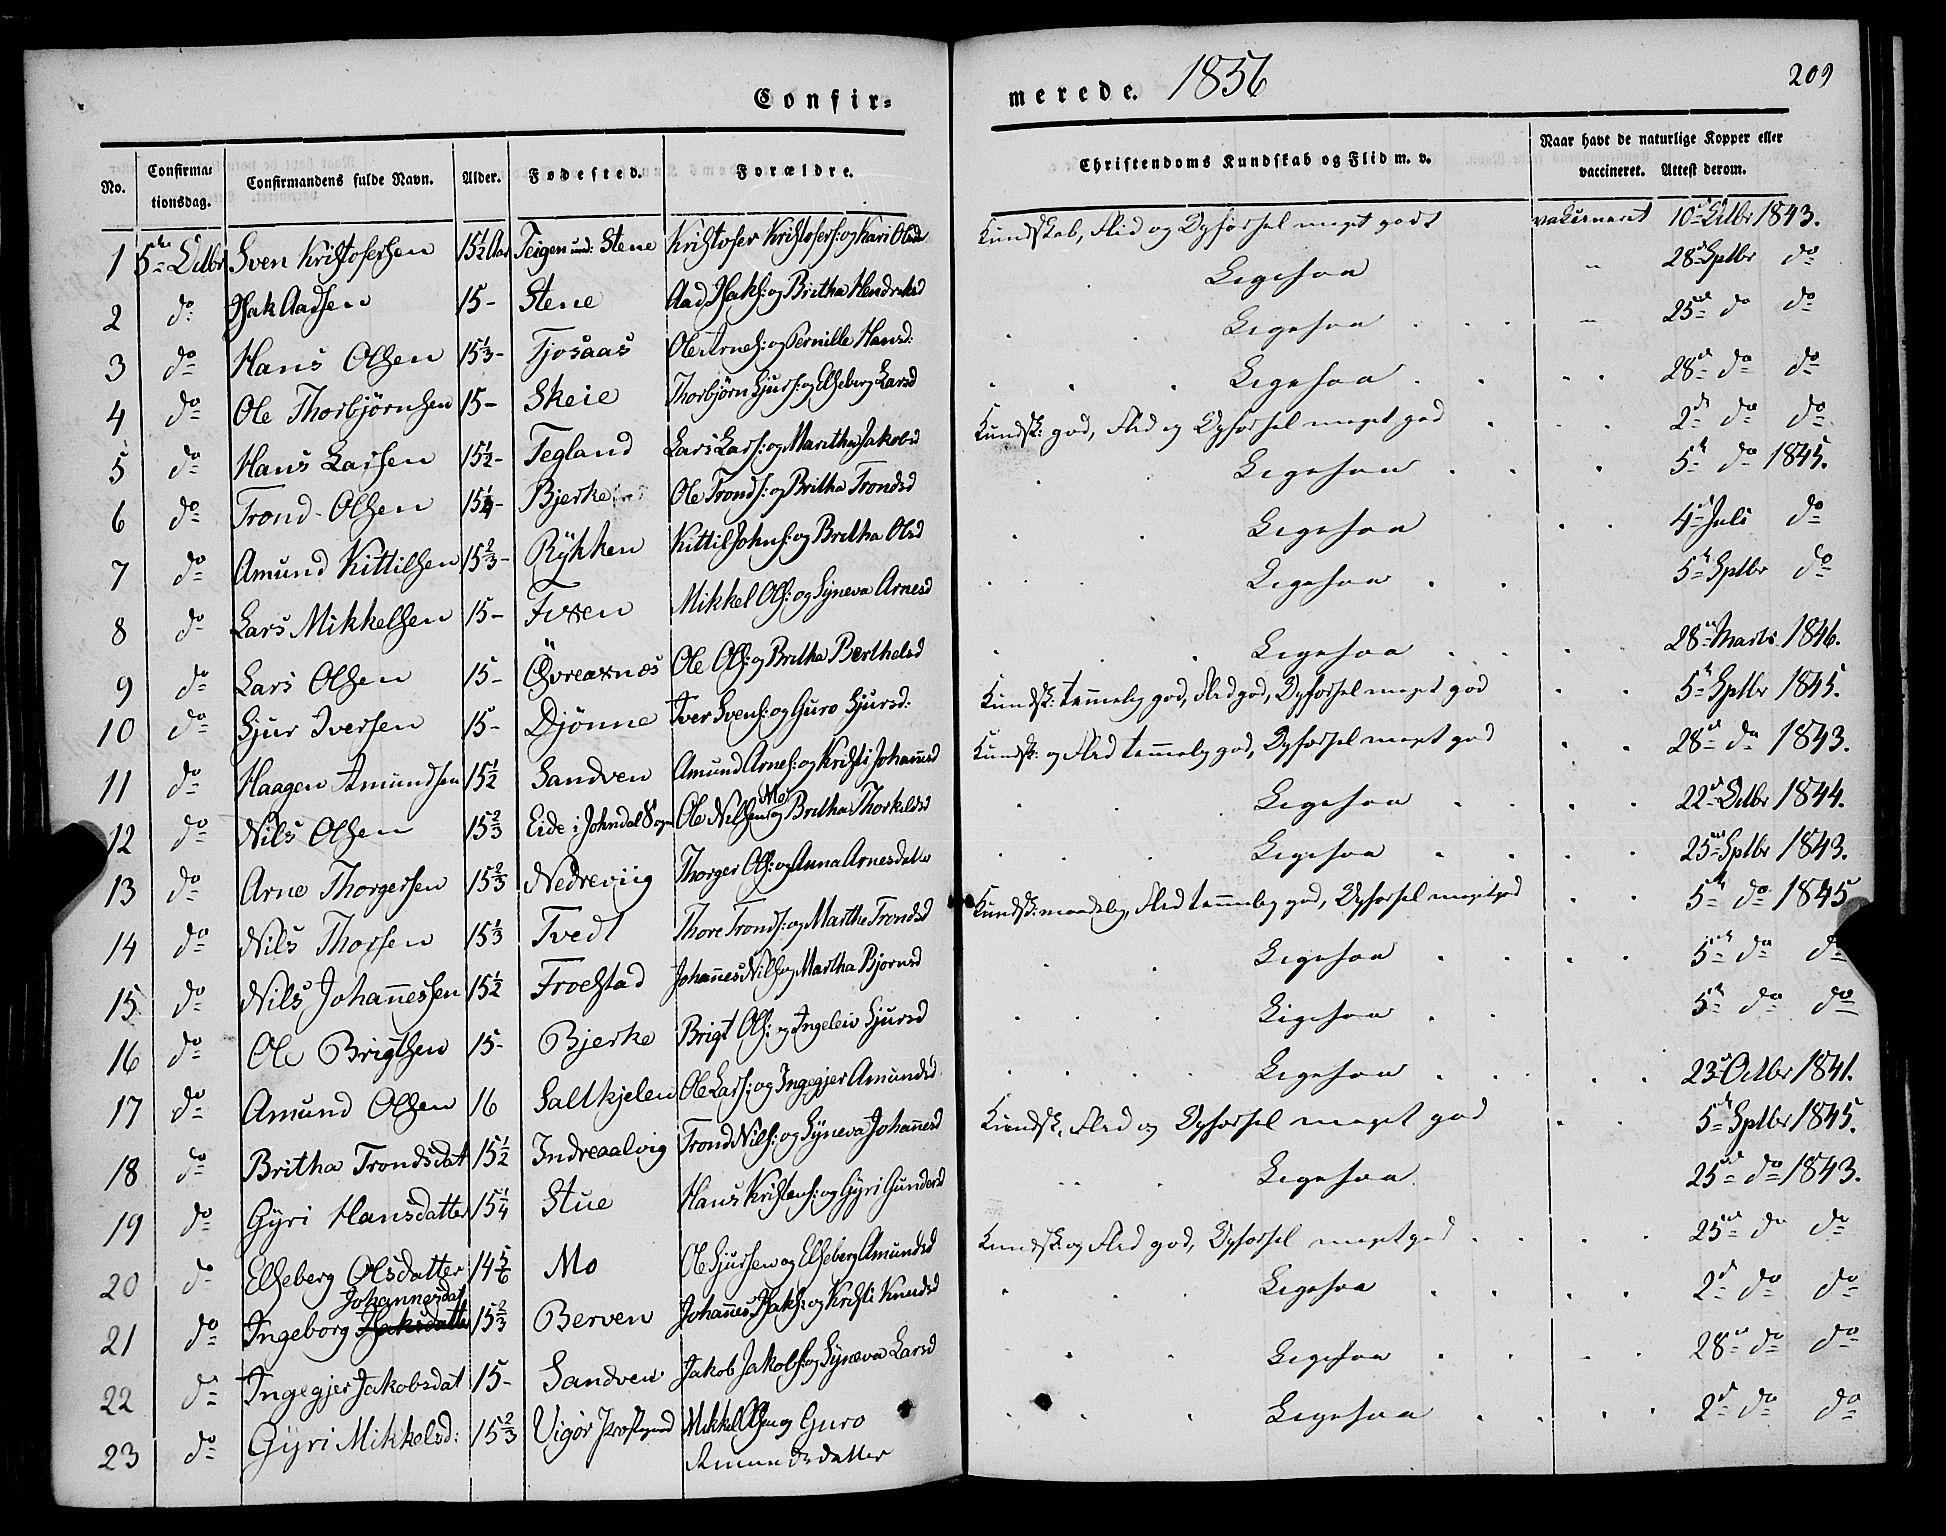 Confir=
merede. 1856
209
No. Confirma= tionsdag. Confirmandens fulde Navn. Alder. Fødested. Forældre. Christendoms Kundskab og Flid m. v. Naar havt de naturlige Kopper eller vaccineret. Attest derom.
1 5te Octbr Sven Kristofersen 15½ Aar Teigen und: Stene Kristofer Kristofers: og Kari Olsd Kundskab, Flid og Opførsel meget godt vakcineret 10de Octbr 1843.
2 do Isak Aadsen 15- Stene Aad Isaks: og Britha Hendriksd Ligesaa " 28de Sptbr do
3 do Hans Olsen 15⅓- Tjosaas Ole Arnes: og Pernille Hansd: Ligesaa " 25de do do
4 do Ole Thorbjørnsen 15- Skeie Thorbjørn Sjurs: og Elseberg Larsd Ligesaa 28de do do
5 do Hans Larsen 15½- Tegland Lars Lars: og Maritha Jakobsd Kundsk: god, Flid og Opførsel meget god 2de do do
6 do Trond Olsen 15¼- Bjerke Ole Tronds: og Britha Trondsd Ligesaa 5te do 1845.
7 do Amund Kittilsen 15⅔- Rykken Kittil Johns: og Britha Olsd Ligesaa 4de Juli do
8 do Lars Mikkelsen 15- Mikkel Ols: og Syneva Arnesd Ligesaa 5te Sptbr do
9 do Lars Olsen 15- Øvreaxnæs Ole Ols: og Britha Berthelsd Ligesaa 28de Marts 1846.
10 do Sjur Iversen 15- Djønne Iver Svens: og Guro Sjursd: Kundsk: temmelig god, Flid god, Opførsel meget god 5te Sptbr 1845.
11 do Haagen Amundsen 15½ Sandven Amund Arnes: og Kristi Johannesd Kundsk: og Flid temmelig god, Opførsel meget god 28de do 1843.
12 do Nils Olsen 15⅔ Eide i Jondal Sogn Ole Nilsen Mo og Britha Thorkildsd Ligesaa 22de Octbr 1844.
13 do Arne Thorgersen 15⅔ Nedreviig Thorger Ols: og Anna Arnesdatter Ligesaa 25de Sptbr 1843.
14 do Nils Thorsen 15⅓ Tvedt Thore Tronds: og Marthe Trondsd Kundsk: maadelig, Flid temmelig god, Opførsel meget god 5te do 1845
15 do Nils Johannessen 15½ Froestad Johannes Nils: og Martha Bjørnsd Ligesaa 5te do do
16 do Ole Brigtsen 15- Bjerke Brigt Ols: og Ingeleiv Sjursd Ligesaa 5te do do
17 do Amund Olsen 16 Saltkjelen Ole Lars: og Ingegjer Amundsd Ligesaa 23de Octbr 1841.
18 do Britha Trondsdat 15½ Indreaalvig Trond Nils: og Syneva Johannesd Kundsk, Flid og Opførsel meget god 5te Sptbr 1845.
19 do Gyri Hansdatter 15¼ Stue Hans Kristens: og Gyri Gundersd Ligesaa 25de do 1843.
20 do Elseberg Olsdatter 14⅚ Mo Ole Sjursen og Elseberg Amundsd Kundsk: og Flid god, Opførsel meget god 25de do do
21 do Ingeborg Isaksdatter Johannesdat 15⅔ Berven Johannes Isaks: og Kristi Knudsd Ligesaa 2de do do
22 do Ingegjer Jakobsdat 15- Sandven Jakob Jakobs: og Syneva Larsd Ligesaa 28de do do
23 do Gyri Mikkelsd: 15⅔ Vigør Præstegjeld Mikkel Olsen og Guro Ligesaa 2de do do
Amundsdatter